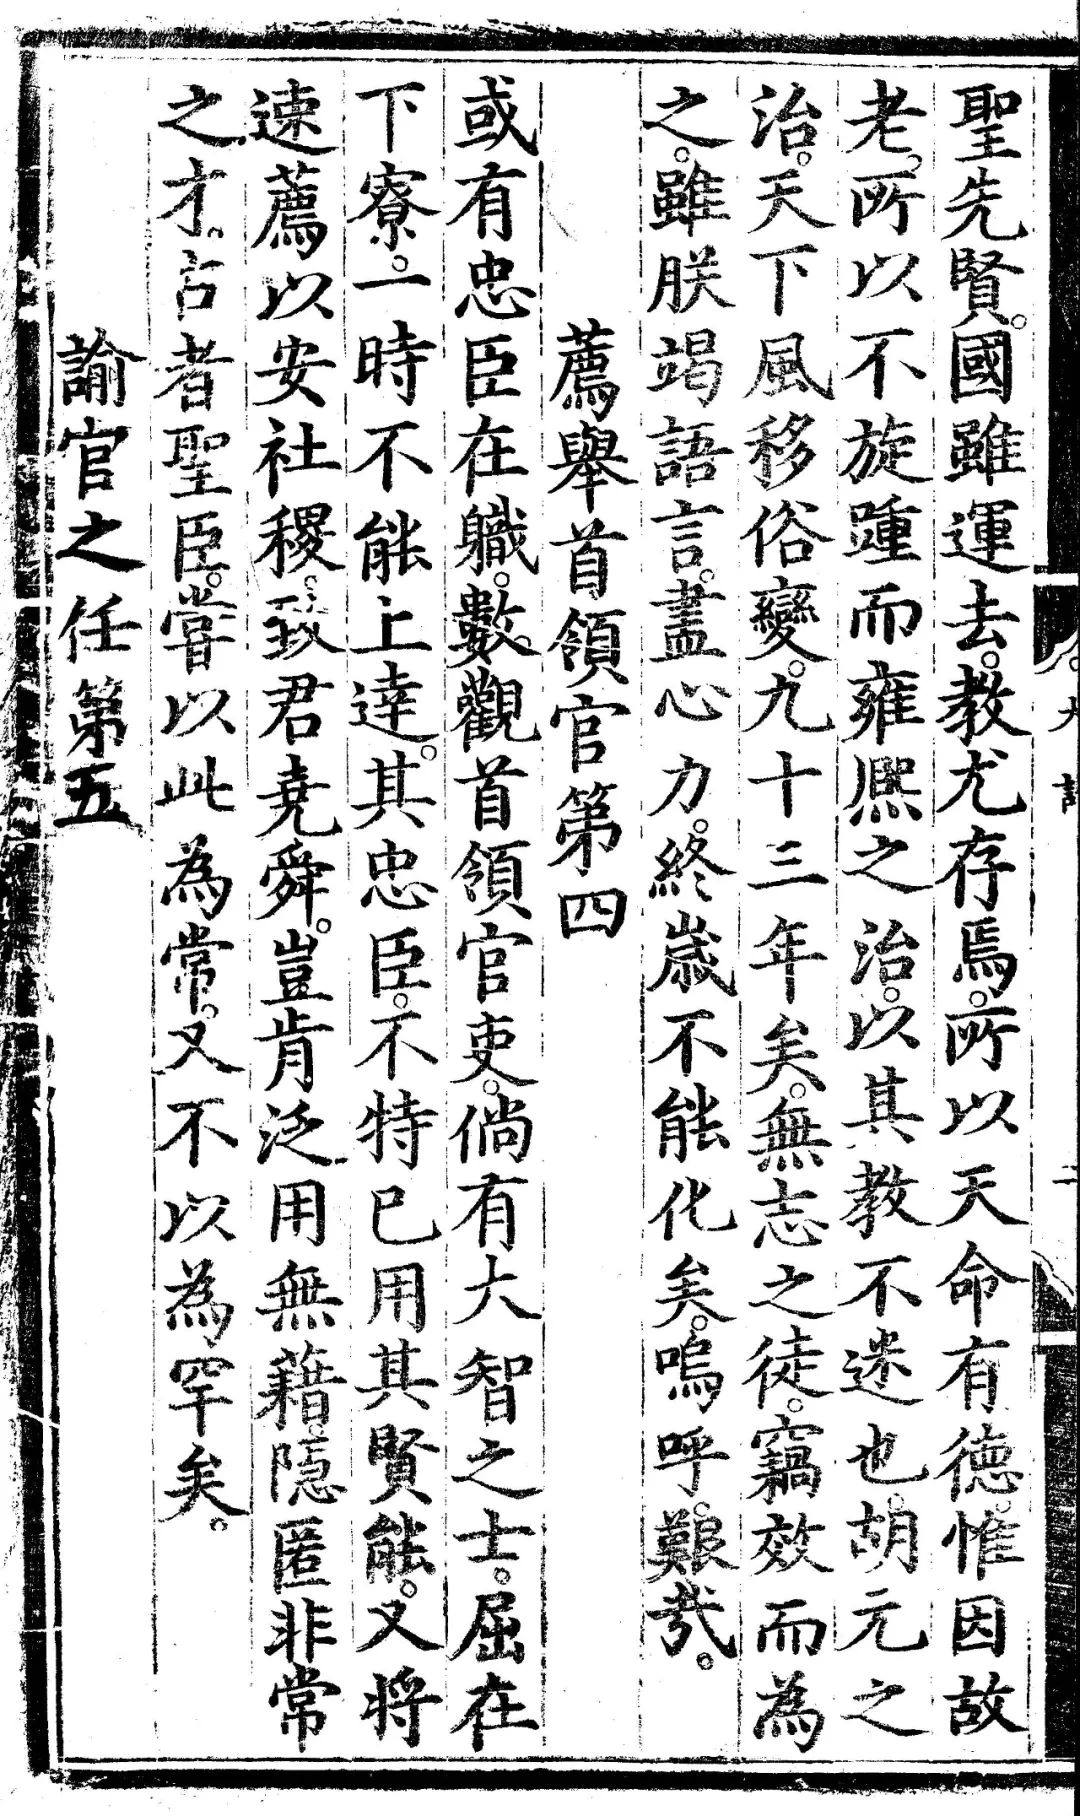 聖先賢。國雖運去。教尤存焉。所以天命有德。惟因故
老。所以不旋踵而雍熈之治。以其教不迷也。胡元之
治。天下風移俗變。九十三年矣。無志之徒。竊效而為
之。雖朕竭語言。盡心力。終歲不能化矣。嗚呼。艱哉。
薦舉首領官第四
或有忠臣在職。數觀首領官吏。倘有大智之士。屈在
下寮。一時不能上達。其忠臣。不特已用其賢能。又將
速薦以安社稷。致君堯舜。豈肯泛用無藉。隱匿非常
之才。古者聖臣。嘗以此為常。又不以為罕矣。
諭官之任第五